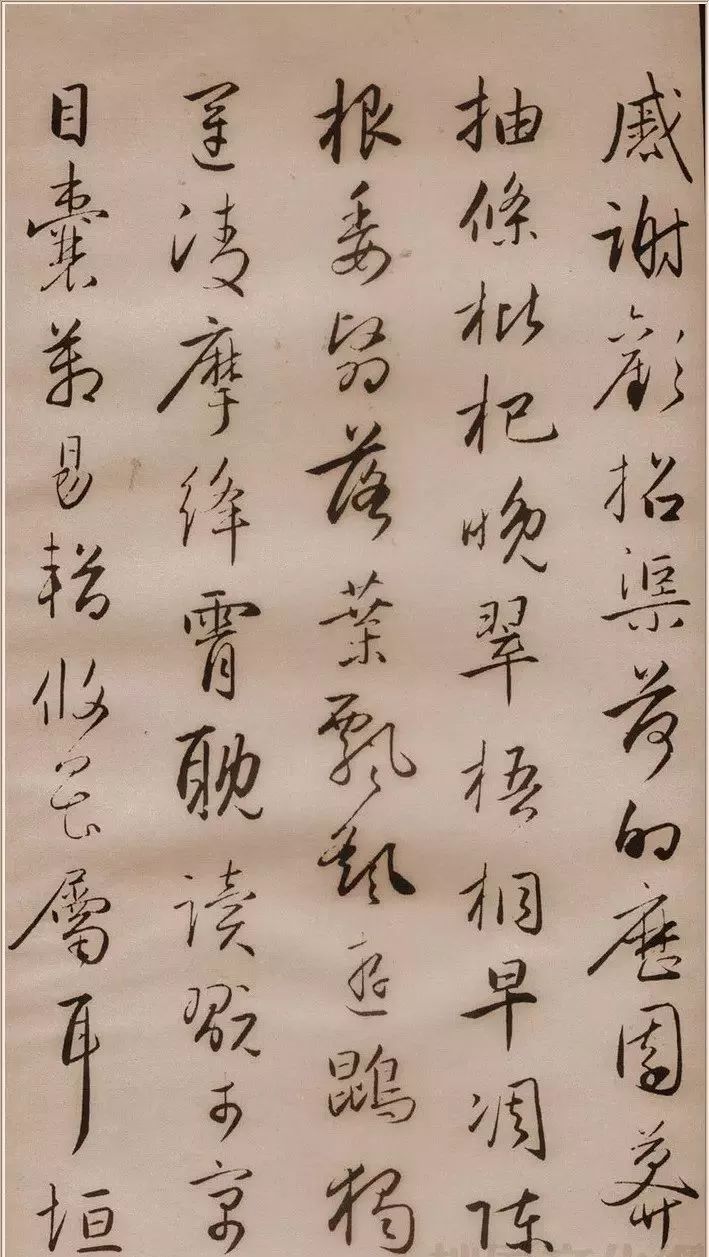 慼謝歡招渠荷的歷園莽
抽條枇杷晚翠梧桐早凋陳
根委翳落葉飄颻遊鵾獨
運淩摩絳霄耽讀翫市寓
目囊箱易輶攸畏屬耳垣